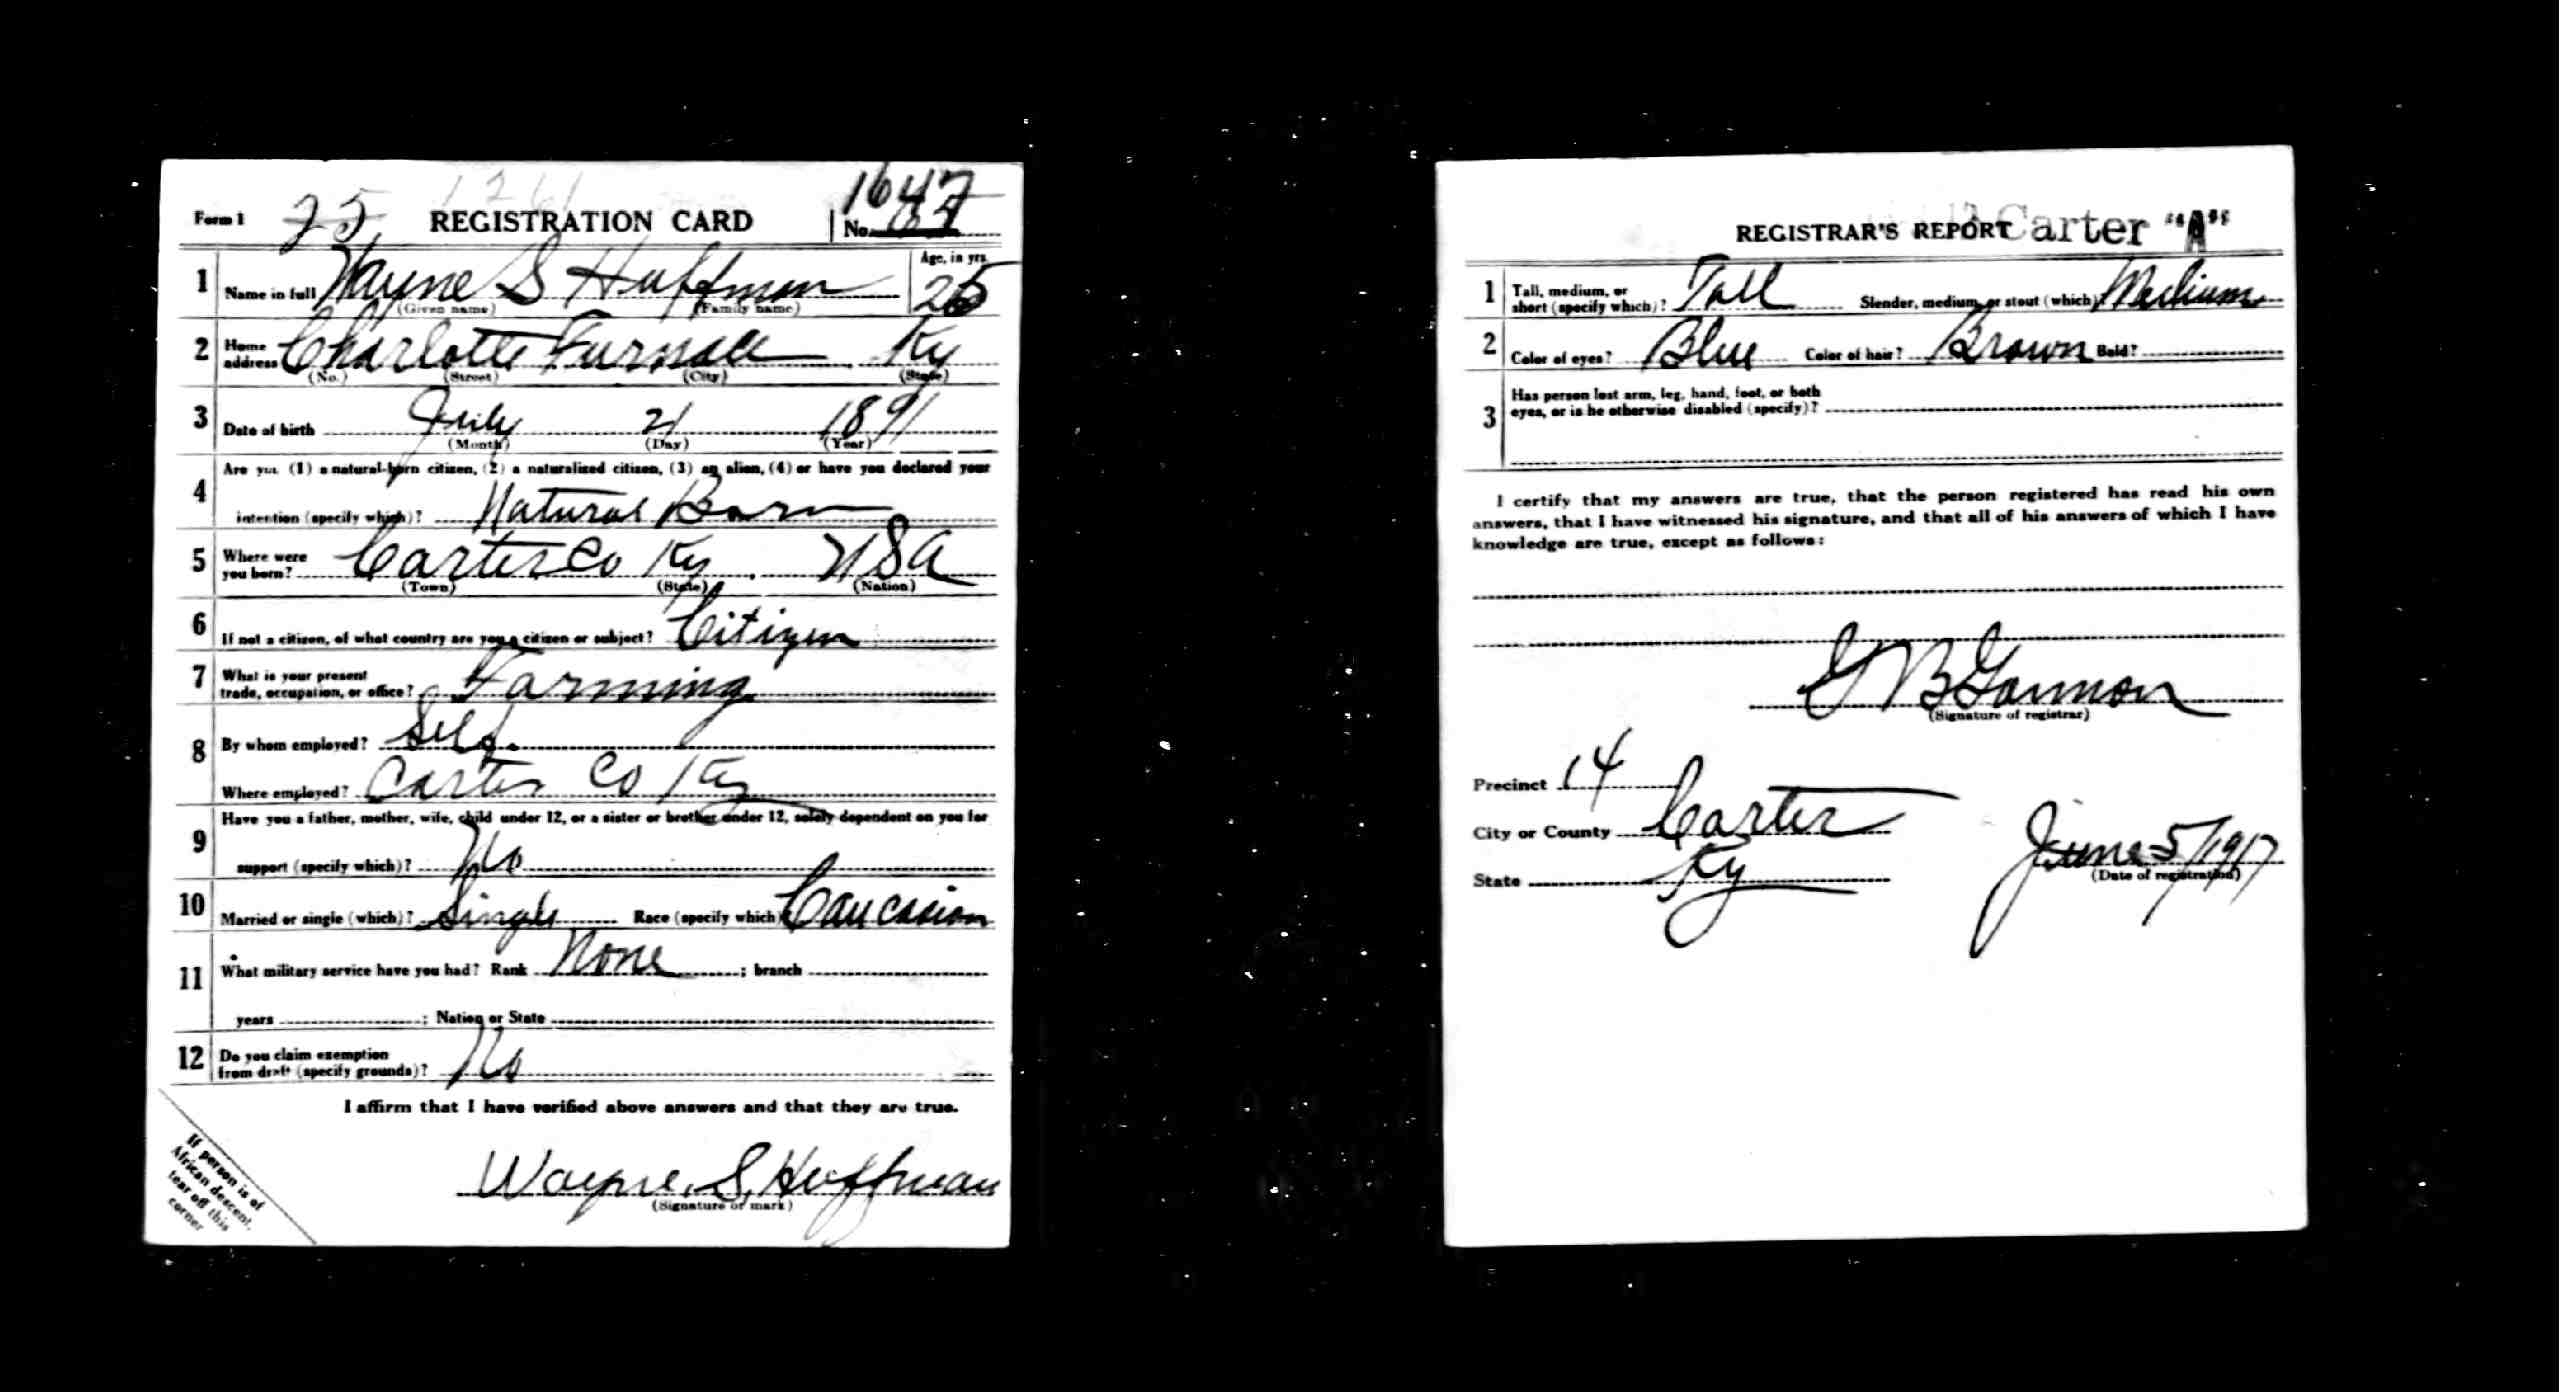 Form 1 25 1261 REGISTRATION CARD No. 1647
1 Name in full Wayne S Huffman Age, in yrs. 25
(Given name) (Family name)
2 Home address Charlotte Furnace Ky
(No.) (Street) (City) (State)
3 Date of birth July 21 1891
(Month) (Day) (Year)
4 Are you (1) a natural-born citizen, (2) a naturalized citizen, (3) an alien, (4) or have you declared your
intention (specify which)? Natural Born
5 Where were you born? Carter Co Ky USA
(Town) (State) (Nation)
6 If not a citizen, of what country are you a citizen or subject? Citizen
7 What is your present
trade, occupation, or office? Farming
8 By whom employed? Self
Where employed? Carter Co Ky
9 Have you a father, mother, wife, child under 12, or a sister or brother under 12, solely dependent on you for
support (specify which)? No
10 Married or single (which)? Single Race (specify which) Caucasian
11 What military service have you had? Rank None ; branch
years ; Nation or State
12 Do you claim exemption
from draft (specify grounds)? No
I affirm that I have verified above answers and that they are true.
Wayne S, Huffman
(Signature or mark)
If person is of
African descent,
tear off this
corner
REGISTRAR'S REPORT Carter "A"
1 Tall, medium, or
short (specify which)? Tall Slender, medium, or stout (which) Medium
2 Color of eyes? Blue Color of hair? Brown Bald?
3 Has person lost arm, leg, hand, foot, or both
eyes, or is he otherwise disabled (specify)?
I certify that my answers are true, that the person registered has read his own
answers, that I have witnessed his signature, and that all of his answers of which I have
knowledge are true, except as follows:
B Gannon
(Signature of registrar)
Precinct 14
City or County Carter
State Ky
June 5/1917
(Date of registration)